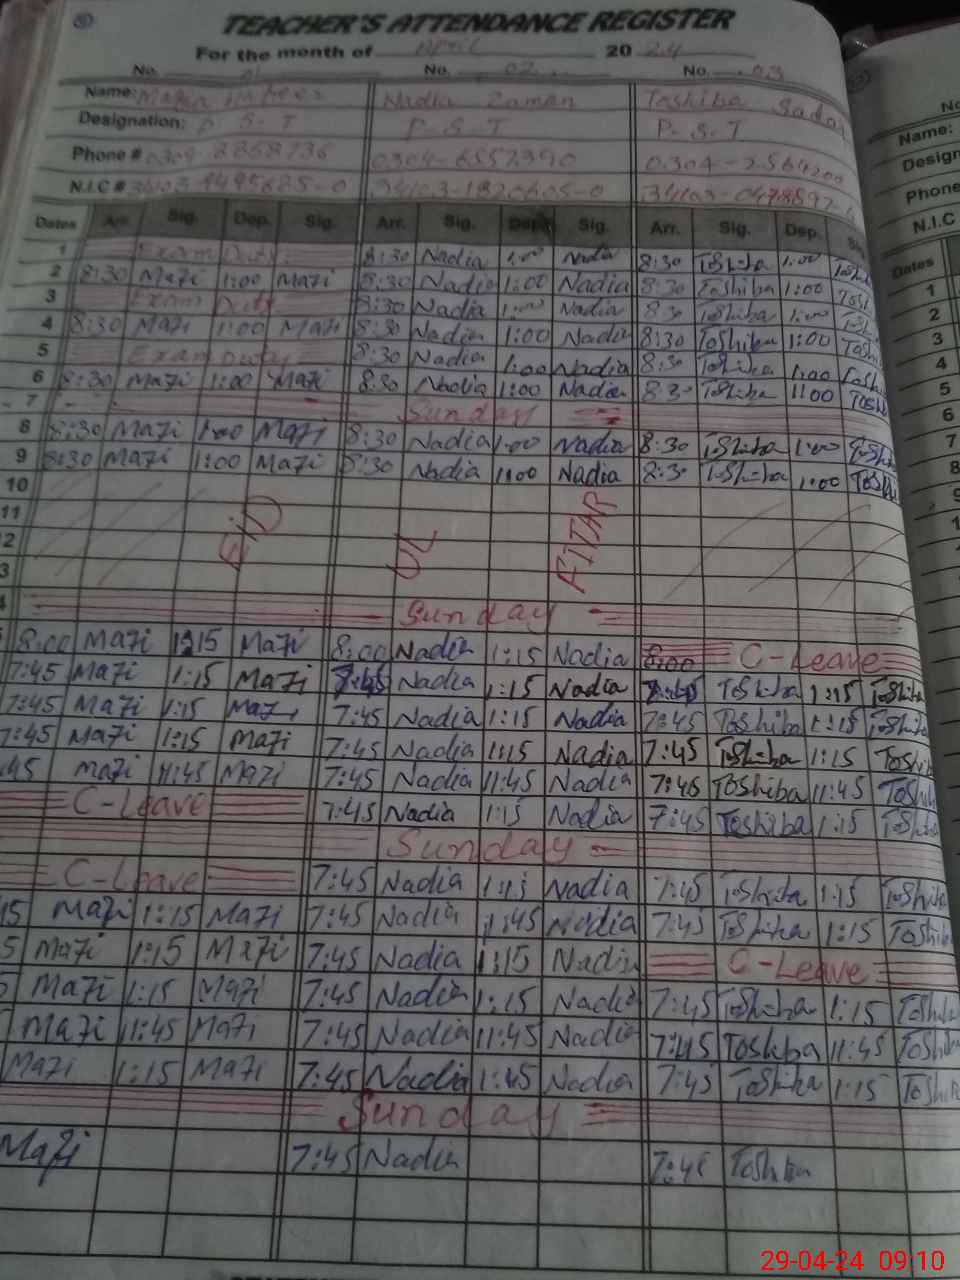 TEACHER'S ATTENDANCE REGISTER
For the month of April 2024
No. 01 No. 02 No. 03
Name: Nadia Zaman Toshiba
Designation: P.S.T P.S.T P.S.T
Phone # 0304-6552390
N.I.C #
Dates Arr. Sig. Dep. Sig. Arr. Sig. Dep. Sig. Arr. Sig. Dep.
1 Exam Duty 8:30 Nadia 1:00 Nadia 8:30 Toshiba 1:00
2 8:30 Mazi 1:00 Mazi 8:30 Nadia 1:00 Nadia 8:30 Toshiba 1:00
3 Exam Duty 8:30 Nadia 1:00 Nadia 8:30 Toshiba 1:00
4 8:30 Mazi 1:00 Mazi 8:30 Nadia 1:00 Nadia 8:30 Toshiba 1:00
5 Exam Duty 8:30 Nadia 1:00 Nadia 8:30 Toshiba 1:00
6 8:30 Mazi 1:00 Mazi 8:30 Nadia 1:00 Nadia 8:30 Toshiba 1:00
7 Sunday
8 8:30 Mazi 1:00 Mazi 8:30 Nadia 1:00 Nadia 8:30 Toshiba 1:00
9 8:30 Mazi 1:00 Mazi 8:30 Nadia 1:00 Nadia 8:30 Toshiba 1:00
10
11 EID UL FITAR
2
3
4 Sunday
8:00 Mazi 1:15 Mazi 8:00 Nadia 1:15 Nadia 8:00 C-Leave
7:45 Mazi 1:15 Mazi 7:45 Nadia 1:15 Nadia 7:45 Toshiba 1:15 Toshiba
7:45 Mazi 1:15 Mazi 7:45 Nadia 1:15 Nadia 7:45 Toshiba 1:15 Toshiba
7:45 Mazi 1:15 Mazi 7:45 Nadia 1:15 Nadia 7:45 Toshiba 1:15 Toshib
45 Mazi 11:45 Mazi 7:45 Nadia 11:45 Nadia 7:45 Toshiba 11:45 Toshib
C-Leave 7:45 Nadia 1:15 Nadia 7:45 Toshiba 1:15 Toshiba
Sunday
C-Leave 7:45 Nadia 1:15 Nadia 7:45 Toshiba 1:15 Toshiba
15 Mazi 1:15 Mazi 7:45 Nadia 1:45 Nadia 7:45 Toshiba 1:15 Toshiba
5 Mazi 1:15 Mazi 7:45 Nadia 1:15 Nadia C-Leave
5 Mazi 1:15 Mazi 7:45 Nadia 1:15 Nadia 7:45 Toshiba 1:15 Toshiba
Mazi 11:45 Mazi 7:45 Nadia 11:45 Nadia 7:45 Toshiba 11:45 Toshib
Mazi 1:15 Mazi 7:45 Nadia 1:45 Nadia 7:45 Toshiba 1:15 Toshiba
Sunday
Mazi 7:45 Nadia 7:45 Toshiba
Name:
Phone
N.I.C
Dates
1
2
3
4
5
6
7
8
29-04-24 09:10